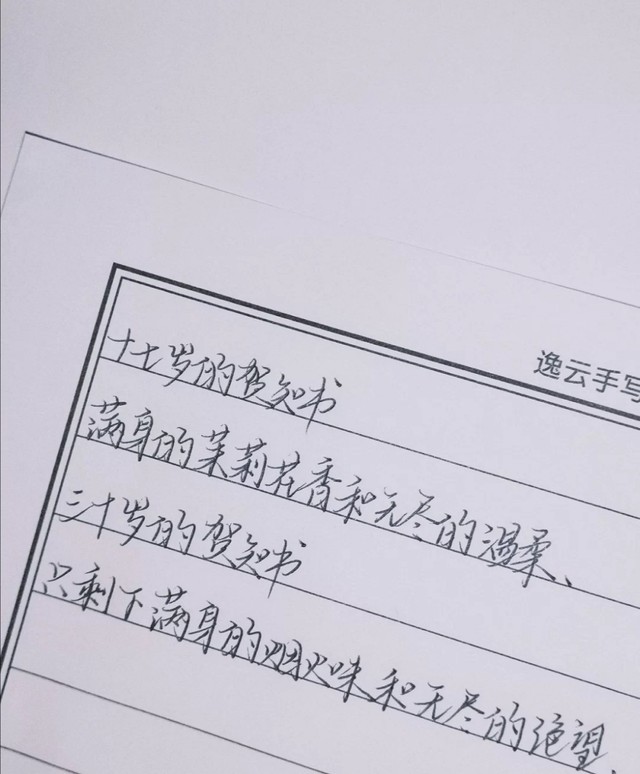 逸云手写
十七岁的贺知书
满身的茉莉花香和无尽的温柔、
三十岁的贺知书
只剩下满身的烟火味和无尽的绝望、